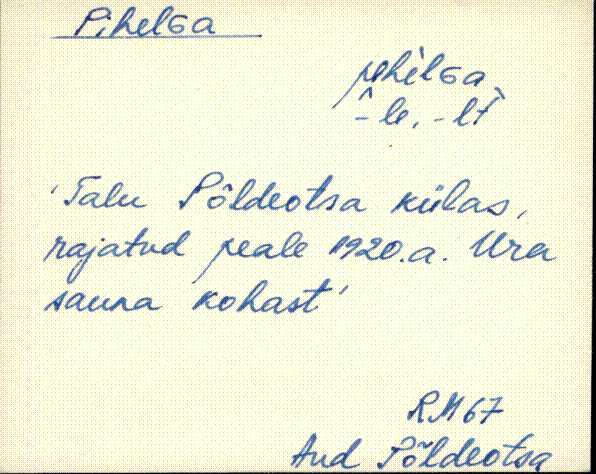 Pihelga
pehèlGa
-̂le, -lt̀
'Talu Põldeotsa külas,
rajatud peale 1920.a. Ura
sauna kohast'
RM 67
Aud Põldeotsa